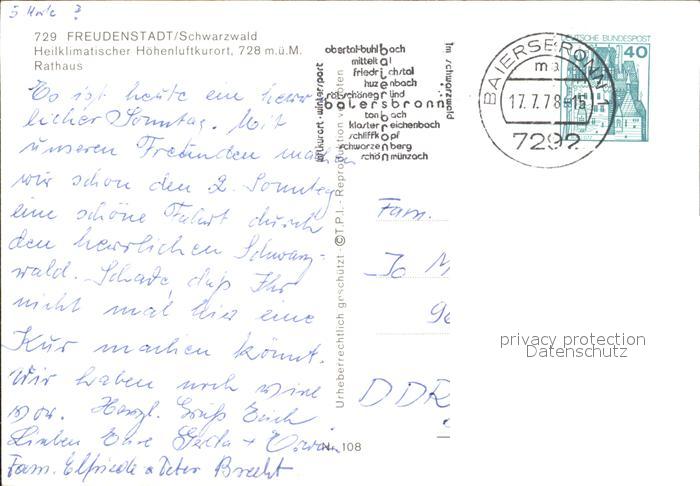 5 Mark ?
729 FREUDENSTADT/Schwarzwald
Heilklimatischer Höhenluftkurort, 728 m.ü.M.
Rathaus
Es ist heute ein herr
licher Sonntag. Mit
unseren Freunden machen
wir schon den 2. Sonntag
eine schöne Fahrt durch
den herrlichen Schwarz-
wald. Schade, daß Ihr
nicht mal hier eine
Kur machen könnt.
Wir haben noch viel
vor. Herzl. Grüß Euch
Lieben Eure Gerta +
Fam. Elfriede u Peter Brecht
Urheberrechtlich geschützt · © T.P.I. - Reproduktion verboten
N. 108
obertal-buhlbach
mitteltal
friedrichstal
huzenbach
röt-schönegründ
baiersbronn
tonbach
klosterreichenbach
schliffkopf
schwarzenberg
schönmünzach
luftkurort · wintersport
im schwarzwald
BAIERSBRONN 1
ma
17.7.78-15
7292
DEUTSCHE BUNDESPOST
40
Fam.
Jo
DDR
privacy protection
Datenschutz